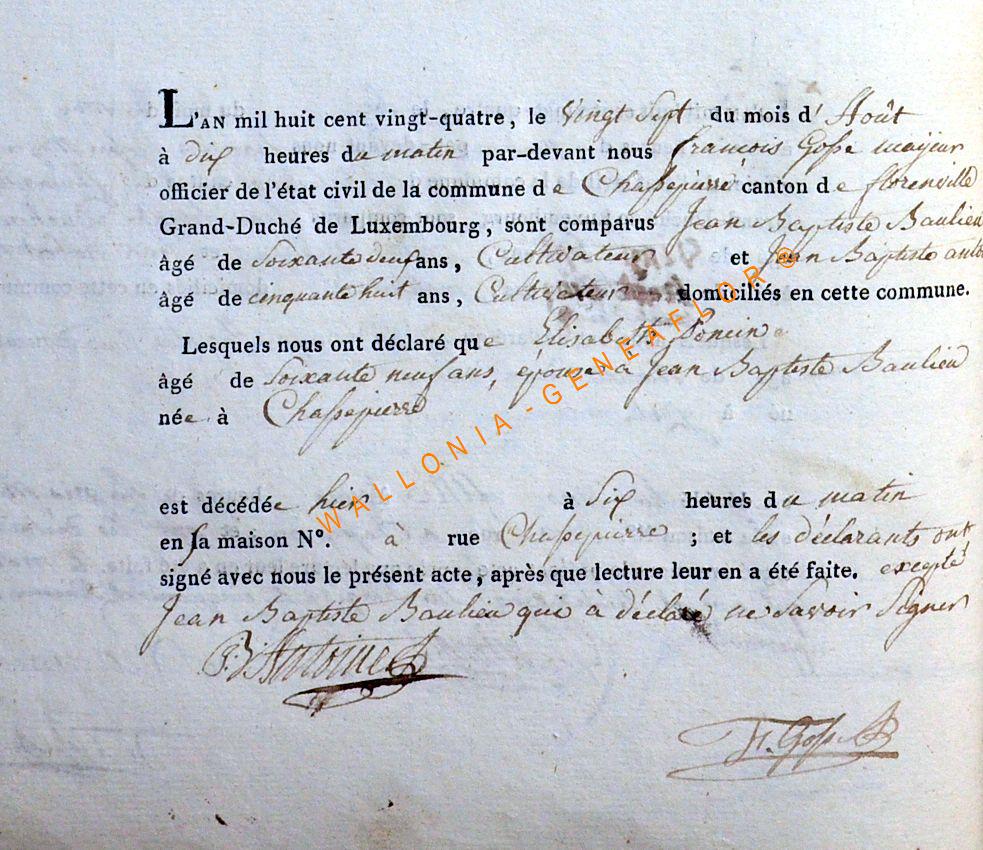 L'AN mil huit cent vingt-quatre, le Vingt Sept du mois d'Août
à dix heures du matin par-devant nous francois Gosse maijeur
officier de l'état civil de la commune de Chassepierre canton de florenville
Grand-Duché de Luxembourg, sont comparus Jean Baptiste Baulieu
âgé de Soixante neuf ans, Cultivateur et Jean Baptiste
âgé de cinquante huit ans, Cultivateur domiciliés en cette commune.
Lesquels nous ont déclaré que Elisabeth Poncin
âgé de Soixante neuf ans, épouse à Jean Baptiste Baulieu
née à Chassepierre
est décédée hier à Six heures du matin
en sa maison N°. à rue Chassepierre ; et les déclarants ont
signé avec nous le présent acte, après que lecture leur en a été faite. exepté
Jean Baptiste Baulieu qui à déclaré ne Savoir Signer
JB Antoine
F. Gosse
WALLONIA-GENEAFLOR©